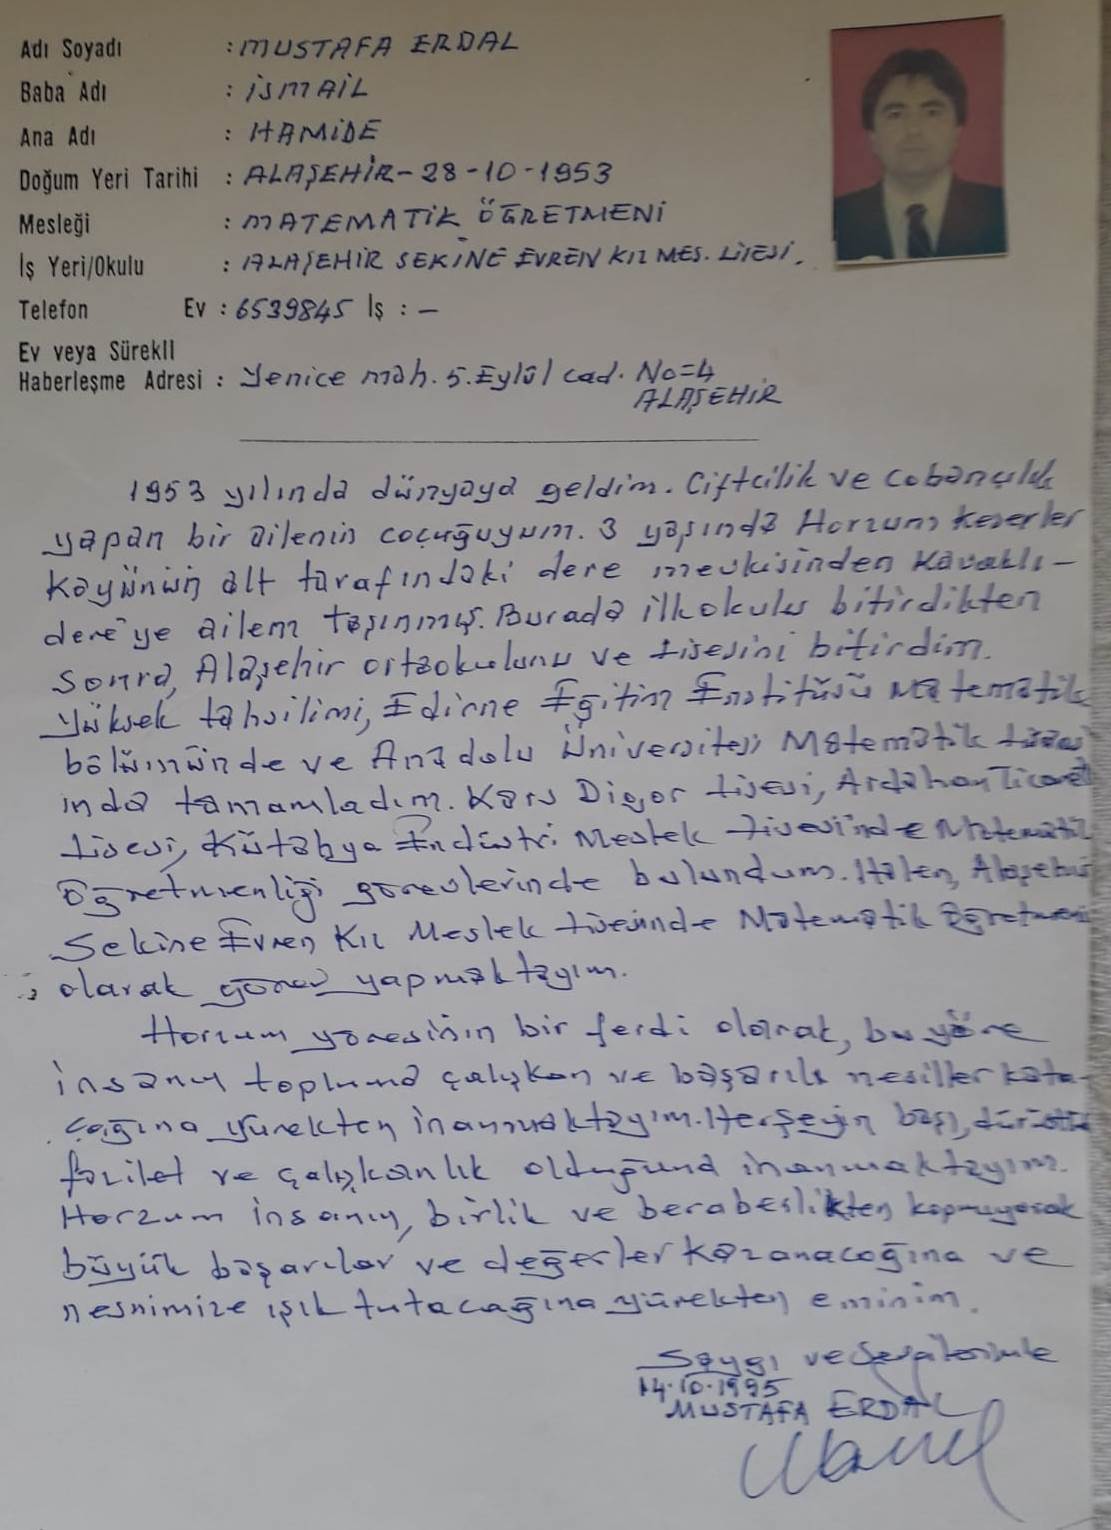 Adı Soyadı : MUSTAFA ERDAL
Baba Adı : İSMAİL
Ana Adı : HAMİDE
Doğum Yeri Tarihi : ALAŞEHİR-28-10-1953
Mesleği : MATEMATİK ÖĞRETMENİ
İş Yeri/Okulu : ALAŞEHİR SEKİNE EVREN KIZ MES. LİSESİ.
Telefon Ev : 6539845 İş : -
Ev veya Sürekli
Haberleşme Adresi : Yenice mah. 5. Eylül cad. No=4
ALAŞEHİR
1953 yılında dünyaya geldim. Çiftcilik ve cobancılık
yapan bir ailenin cocuğuyum. 3 yaşında Horzum Keserler
Köyünün alt tarafındaki dere mevkisinden Kavaklı-
dere'ye ailem taşınmış. Burada ilkokulu bitirdikten
sonra, Alaşehir ortaokulunu ve Lisesini bitirdim.
Yüksek tahsilimi, Edirne Eğitim Enstitüsü Matematik
bölümünde ve Anadolu Üniversitesi Matematik Lisas
ında tamamladım. Kars Digor Lisesi, Ardahan Ticaret
Lisesi, Kütahya Endüstri Meslek Lisesinde Matematik
Öğretmenliği görevlerinde bulundum. Halen, Alaşehir
Sekine Evren Kız Meslek Lisesinde Matematik Öğretmeni
olarak görev yapmaktayım.
Horzum yöresinin bir ferdi olarak, bu yöre
insanın topluma çalışkan ve başarılı nesiller kata-
cağına yürekten inanmaktayım. Herşeyin başı, dürüstlük
fazilet ve çalışkanlık olduğuna inanmaktayım.
Horzum insanın, birlik ve beraberlikten kopmıyarak
büyük başarılar ve değerler kazanacağına ve
neslimize ışık tutacağına yürekten eminim.
Saygı ve Sevgilerimle
14.10.1995
MUSTAFA ERDAL